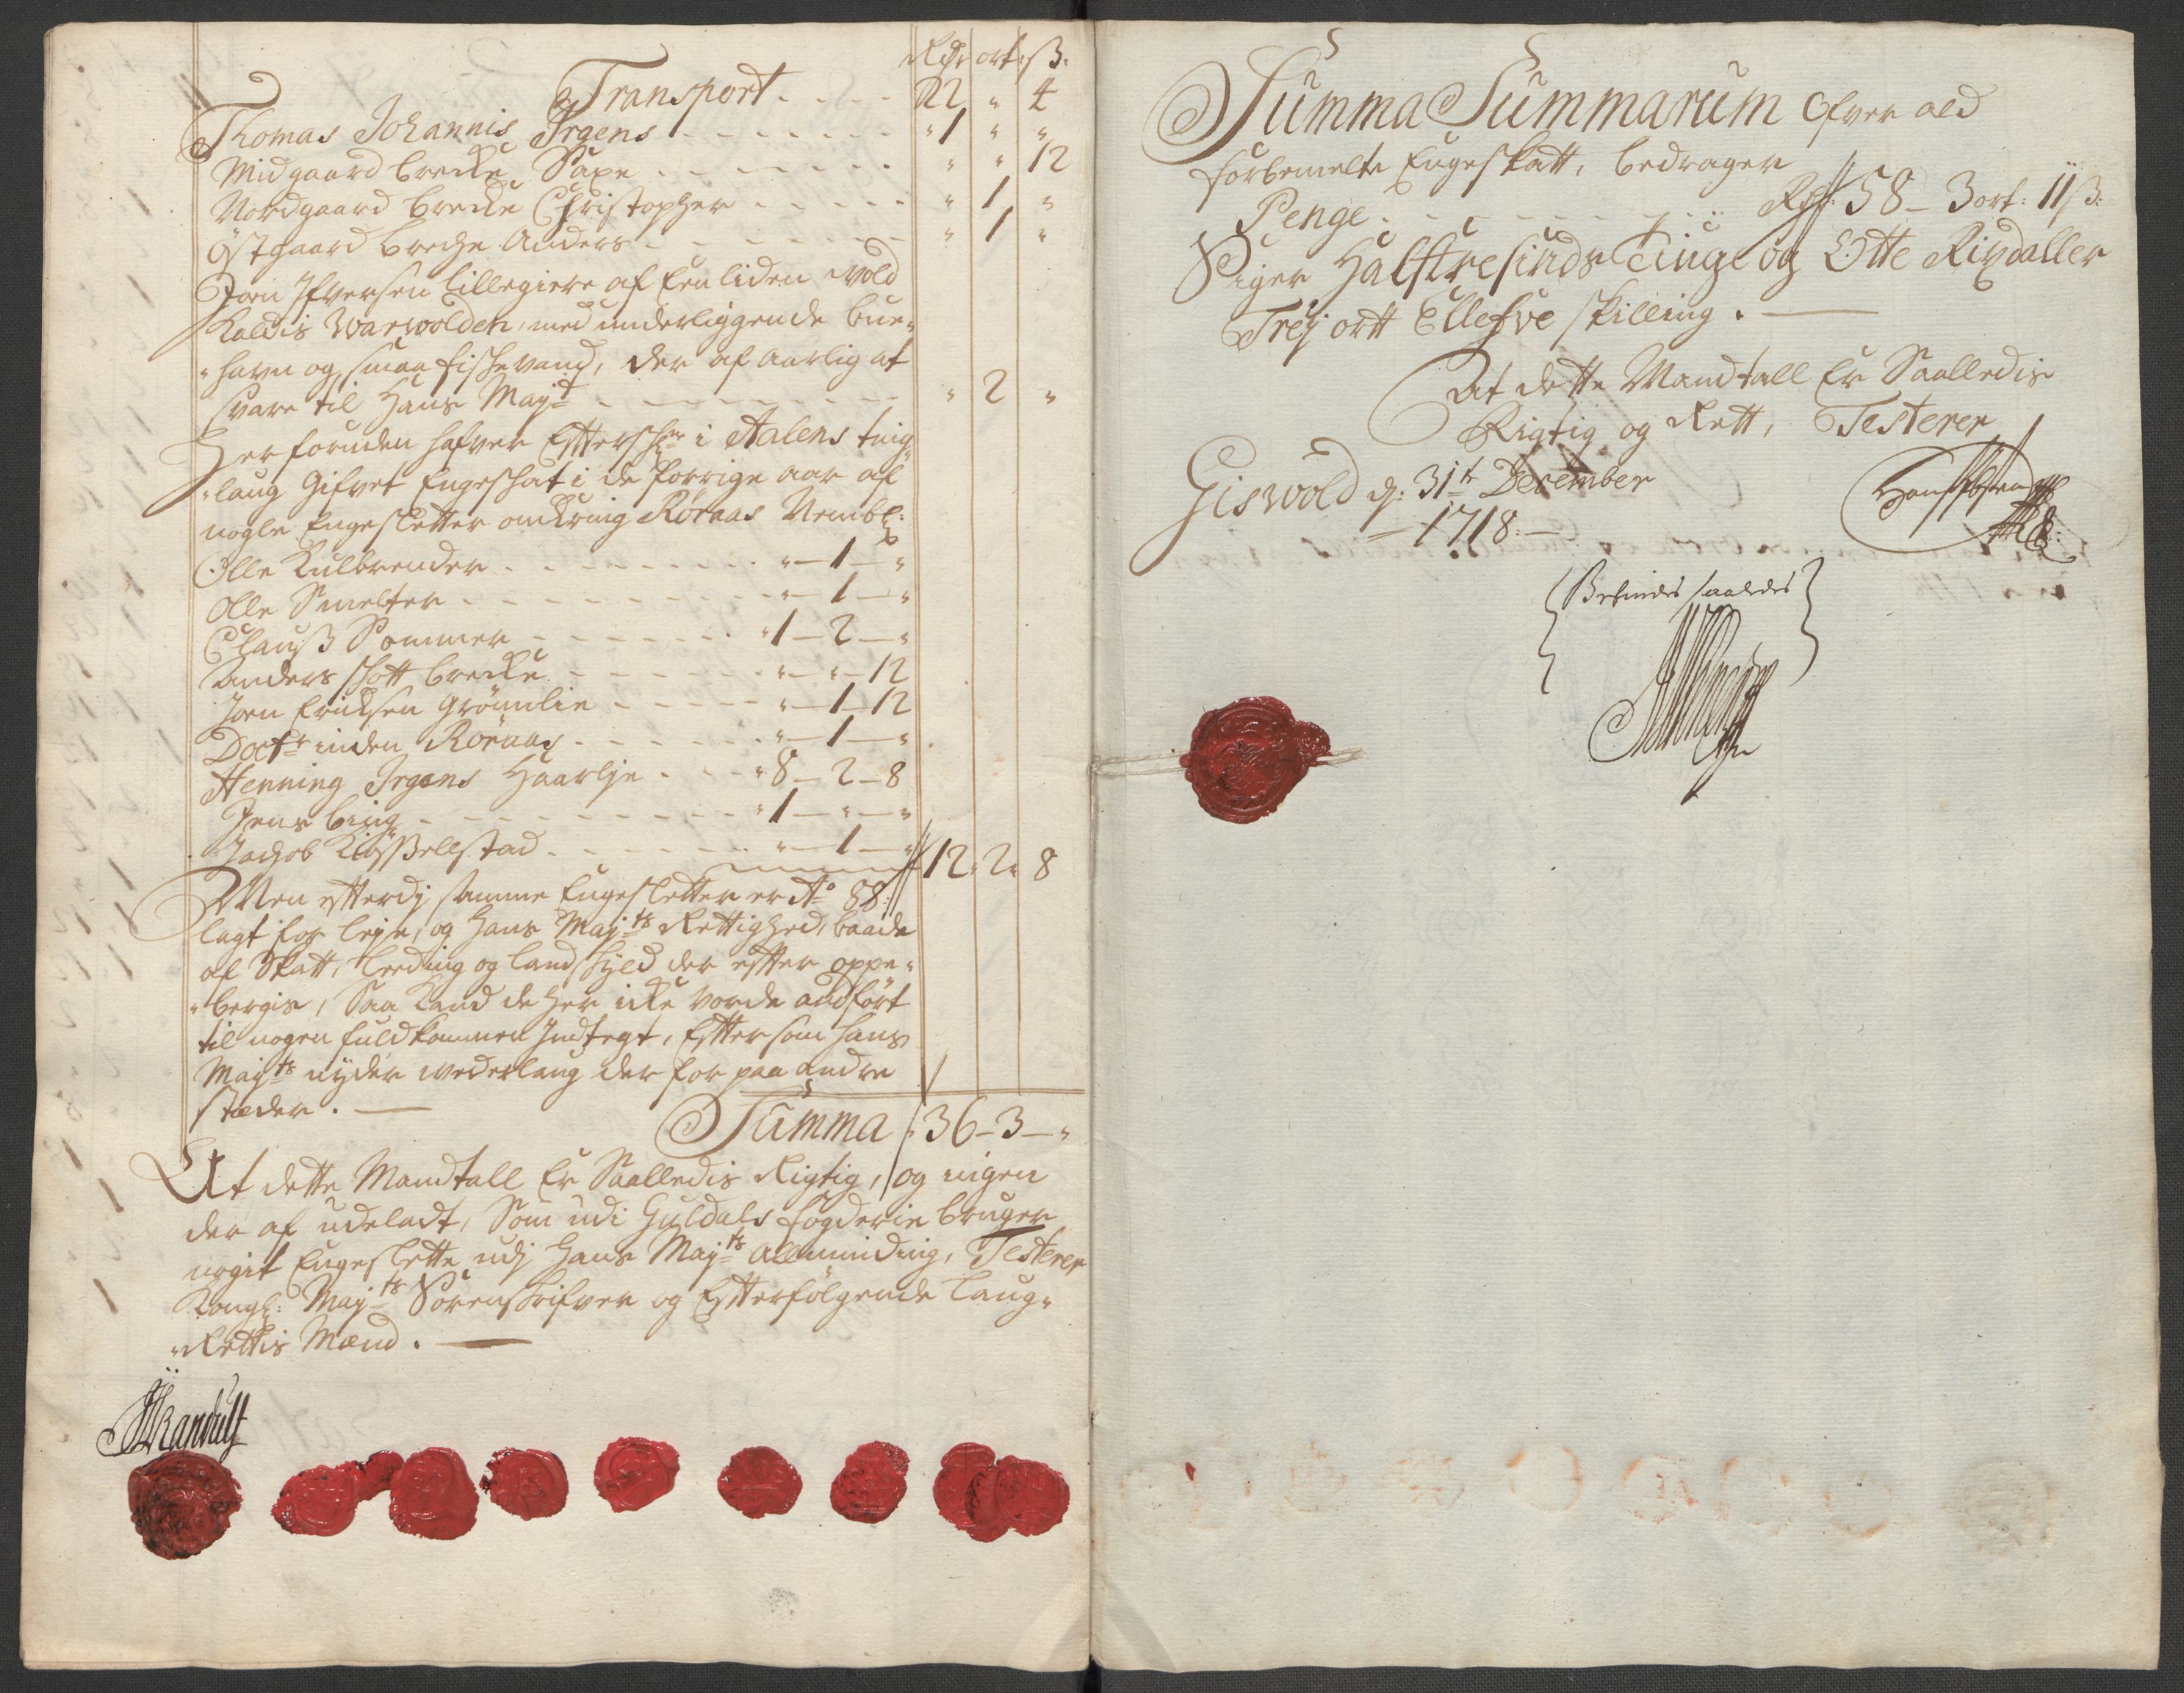 Rdr ort ß.
Transport - - - - 22 " 4
Thomas Johannis Irgens - - - - - - - "1 " "
Midgaard brecke Saxe - - - - - - " " 12
Nordgaard brecke Christopher - - - - - " 1 "
Østgaard breche Anders - - - - - - - " 1 "
Joen Ifversen Lillegiere af Een liden vold
Kaldis Warvolden, med underliggende bue-
"havn og smaa fischevand, der af aarlig at
svare til Hans Mayt - - - - - - - - " 2 "
Her foruden hafver Efterschne i Aalens ting-
"laug Gifvet Engeschat i de forrige aar af
nogle Engesletter omkring Røraas Nembl:
Olle Kulbrender - - - - - - - - " — 1 — "
Olle Smelter - - - - - - - - - " — 1 — "
Clauß Sommer - - - - - - - "1 — 2 — "
Anders schott brecke - - - - - - - " — " — 12
Joen Ericksen Grømlie - - - - - " — 1 — 12
Doctr inden Røraas - - - - - - " — 1 — "
Henning Irgens Haarlje - - - - "8 — 2 — 8
Jens bing - - - - - - - - - "1 — " — "
Jachob Kißellstad - - - - - - " — 1 — " 12 " 2 " 8
Men efterdj samme Engesletter er Ao 88
lagt for leje, og Hans Mayts Rettighed, baade
af Skatt, Leeding og landskyld der efter oppe-
"bergis, Saa Kand de her icke vorde andført
til nogen fuldkommen Indtegt, Efter som Hans
Mayts nyder vederlaug der for paa andre
stæder. —
Summa "36 — 3 — "
At dette Mandtall Er Saalledis Rigtig, og ingen
der af udeladt, Som udi Guldals fogderie bruger
nogit Engeslette udj Hans Mayts Allminding, Testerer
Kongl: Mayts Sorenskrifver og Efterfølgende Laug-
"Rettis Mænd. —
Summa Summarum Ofver ald
forbemelte Engeskatt, bedrager
Penge - - - - - - - - Rdr: 58 — 3 ort: 11 ß:
Siger Halftresinds Tiuge og Otte Rixdaller
Trej ortt Ellefve skilling. —
At dette Mandtall Er Saalledis
Rigtig og Rett, Testerer
Giswold d: 31te December
— 1718: —
Befindes saaledes